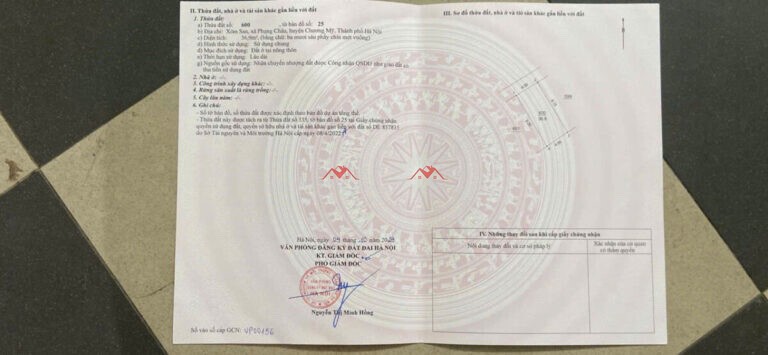 II. Thửa đất, nhà ở và tài sản khác gắn liền với đất
1. Thửa đất:
a) Thửa đất số: 600 , tờ bản đồ số: 25
b) Địa chỉ: Xóm San, xã Phụng Châu, huyện Chương Mỹ, Thành phố Hà Nội
c) Diện tích: 36,9m² (bằng chữ: ba mươi sáu phẩy chín mét vuông)
d) Hình thức sử dụng: Sử dụng chung
đ) Mục đích sử dụng: Đất ở tại nông thôn
e) Thời hạn sử dụng: Lâu dài
g) Nguồn gốc sử dụng: Nhận chuyển nhượng đất được Công nhận QSDĐ như giao đất có
thu tiền sử dụng đất
2. Nhà ở: -/-
3. Công trình xây dựng khác: -/-
4. Rừng sản xuất là rừng trồng: -/-
5. Cây lâu năm: -/-
6. Ghi chú:
- Số tờ bản đồ, số thửa đất được xác định theo bản đồ dự án tổng thể.
- Thửa đất này được tách ra từ Thửa đất số 335, tờ bản đồ số 25 tại Giấy chứng nhận
quyền sử dụng đất, quyền sở hữu nhà ở và tài sản khác gắn liền với đất số DE 857835
do Sở Tài nguyên và Môi trường Hà Nội cấp ngày 08/4/2022
Hà Nội, ngày tháng năm
VĂN PHÒNG ĐĂNG KÝ ĐẤT ĐAI HÀ NỘI
KT. GIÁM ĐỐC
PHÓ GIÁM ĐỐC
Nguyễn Thị Minh Hồng
Số vào sổ cấp GCN: VP00156
III. Sơ đồ thửa đất, nhà ở và tài sản khác gắn liền với đất
600
36.9
IV. Những thay đổi sau khi cấp giấy chứng nhận
Nội dung thay đổi và cơ sở pháp lý
Xác nhận của cơ quan
có thẩm quyền